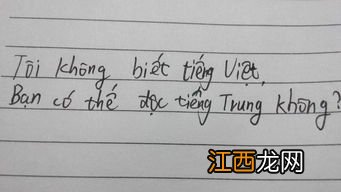 Tôi không biết tiếng Việt,
Bạn có thế đọc tiếng Trung không?
江西龙网